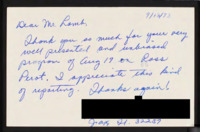 Dear Mr. Lamb,
Thank you so much for your very
well presented and unbiased
program of Aug 19 on Ross
Perot. I appreciate this kind
of reporting. Thanks again!